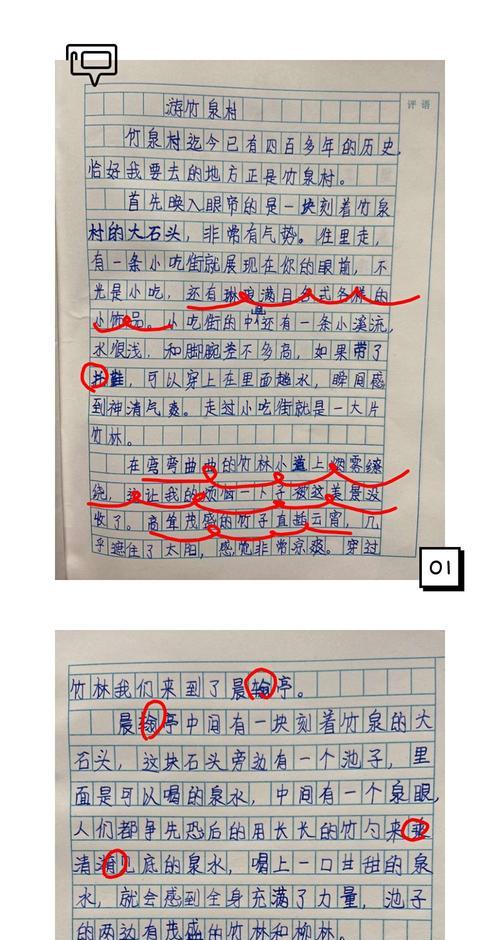 评语
游竹泉村
竹泉村迄今已有四百多年的历史，
恰好我要去的地方正是竹泉村。
首先映入眼帘的是一块刻着竹泉
村的大石头，非常有气势。住里走，
有一条小吃街就展现在你的眼前，不
光是小吃，还有琳琅满目各式各样的
小饰品。小吃街的中间还有一条小溪流，
水很浅，和脚腕差不多高，如果带了
拖鞋，可以穿上在里面趟水，瞬间感
到神清气爽。走过小吃街就是一大片
竹林。
在弯弯曲曲的竹林小道上烟雾缭
绕，这让我的烦恼一下子被这美景没
收了。高耸茂盛的竹子直插云宵，几
乎遮住了太阳，感觉非常凉爽。穿过
01
竹林我们来到了晨亭。
晨亭中间有一块刻着竹泉的大
石头，这块石头旁边有一个池子，里
面是可以喝的泉水，中间有一个泉眼，
人们都争先恐后的用长长的竹勺来
清底的泉水，喝上一口甘甜的泉
水，就会感到全身充满了力量，池子
的两边有茂盛的竹林和柳林。